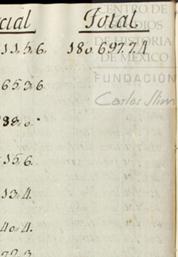 cial Total
115.6. 180697.7.4
65 3.6
88.0.
15.6.
13.4.
40.4.
CENTRO DE
ESTUDIOS
DE HISTORIA
DE MÉXICO
FUNDACIÓN
Carlos Slim